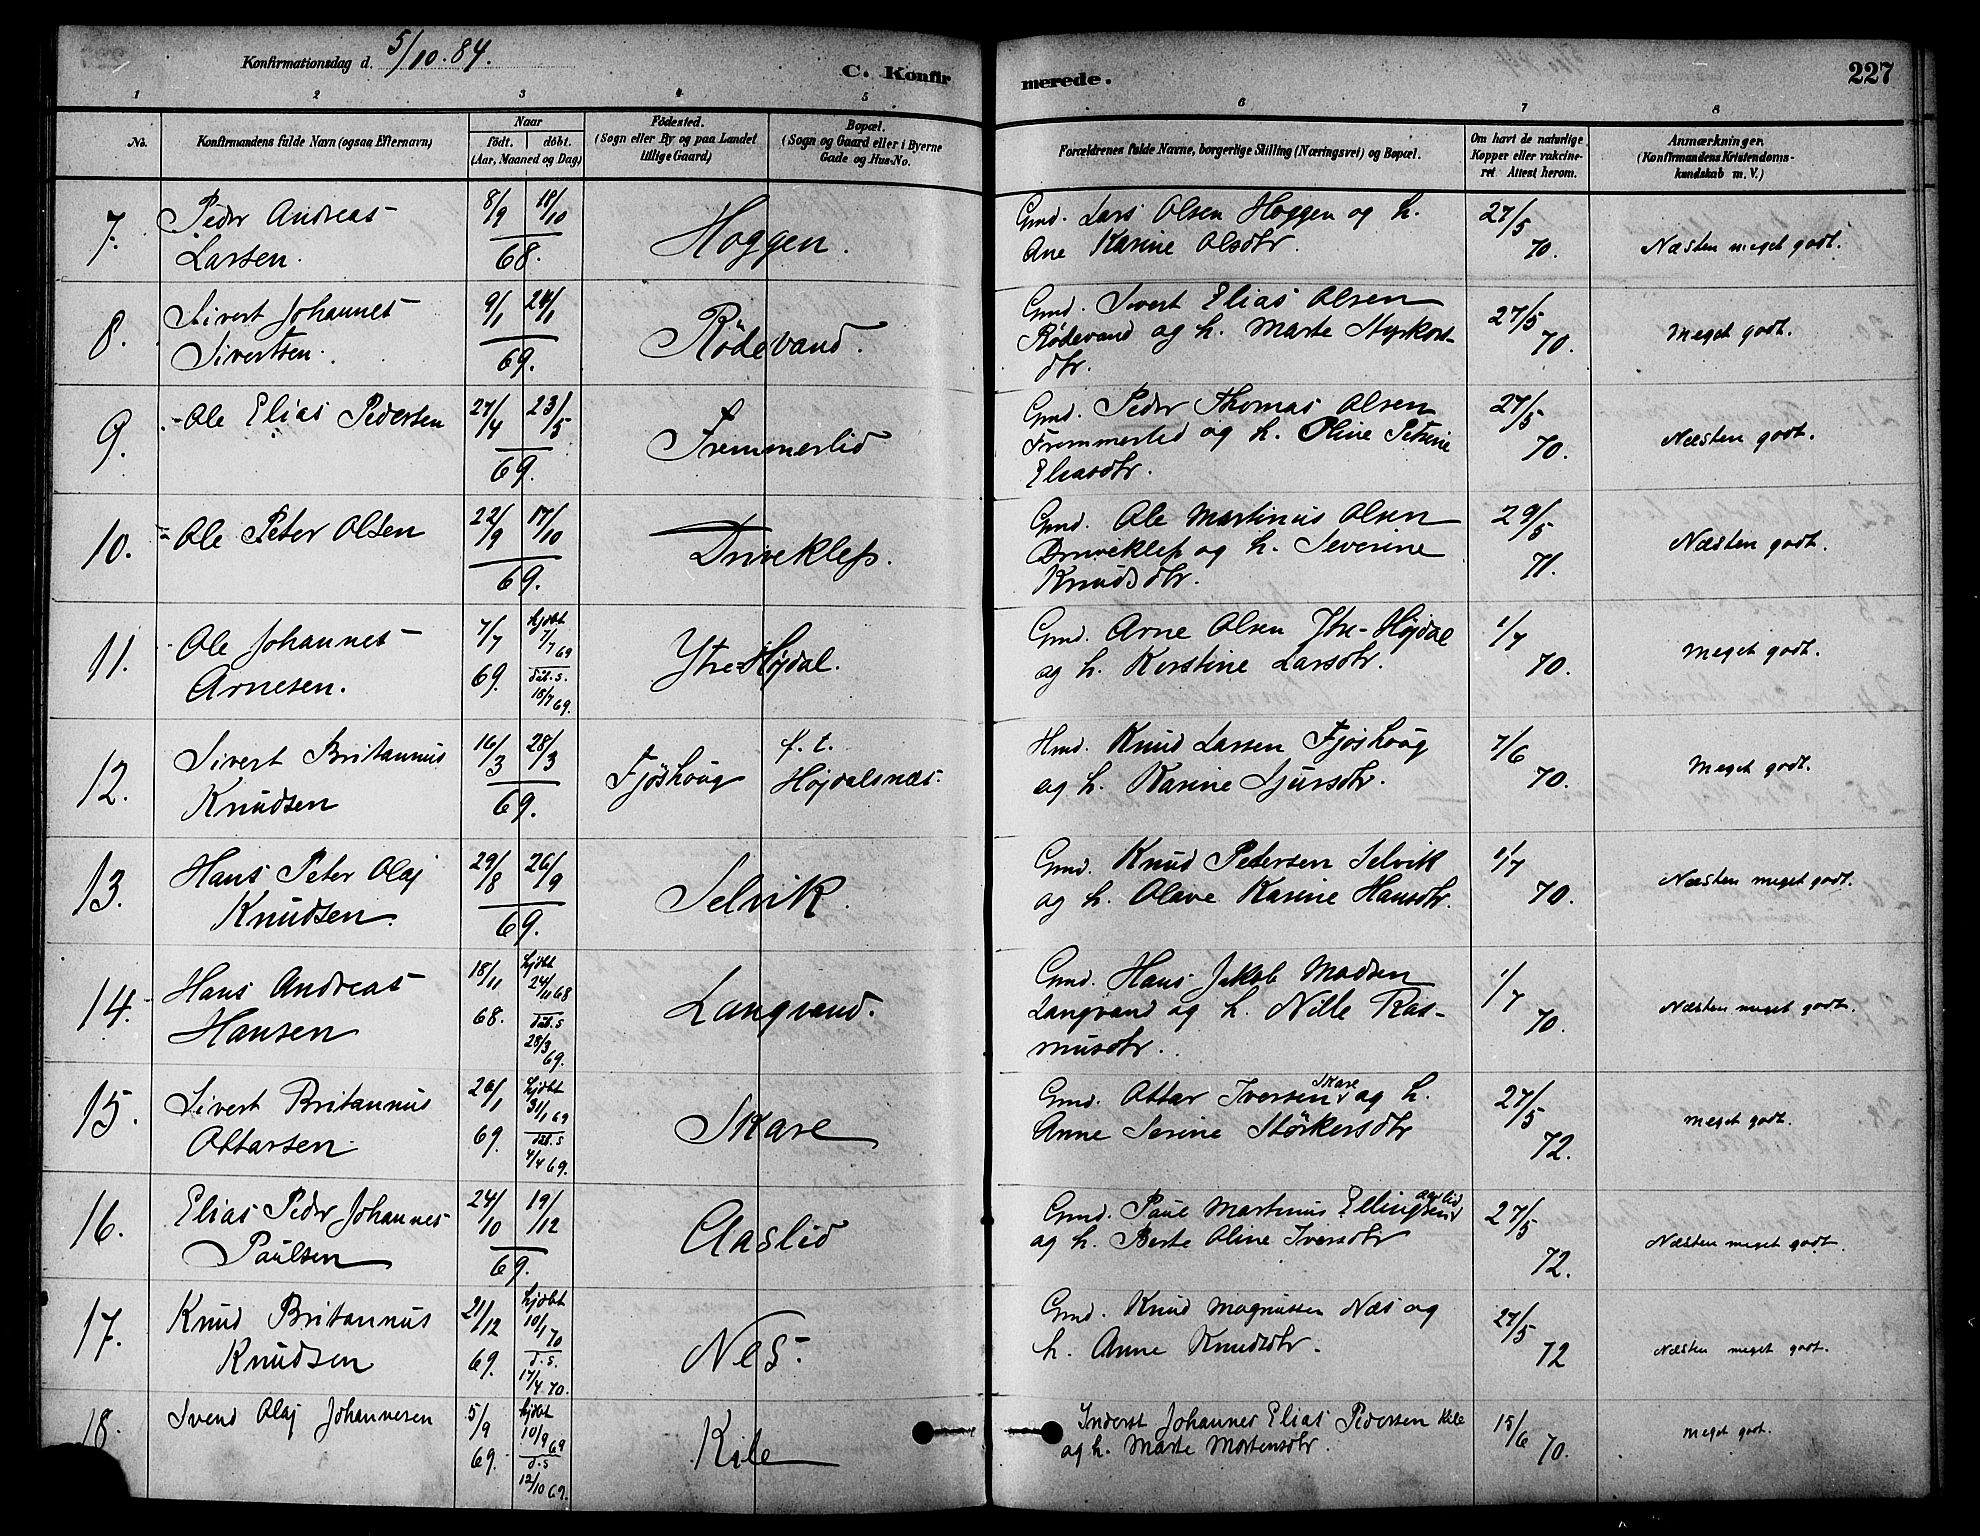 Konfirmationsdag d. 5/10.84.
C. Konfirmerede.
227
1 2 3 4 5 6 7 8
No.
Konfirmandens fulde Navn (ogsaa Efternavn)
Naar
födt. döbt.
(Aar, Maaned og Dag)
Födested.
(Sogn eller By og paa Landet tillige Gaard)
Bopæl.
(Sogn og Gaard eller i Byerne Gade og Hus-No.
Forældrenes fulde Navne, borgerlige Stilling (Næringsvei) og Bopæl.
Om havt de naturlige Kopper eller vakcineret Attest herom.
Anmærkninger.
(Konfirmandens Kristendomskundskab m. V.)
7. Peder Andreas Larsen. 8/9 18/10 68. Hoggen. Gmd. Lars Olsen Hoggen og h. 27/5 70. Næsten meget godt.
Ane Karine Olsdtr.
8. Sivert Johannes Sivertsen. 9/1 24/1 69. Rödevand. Gmd. Sivert Elias Olsen 27/5 70. Meget godt.
Rödevand og h. Marte Styrkors-
dtr.
9. Ole Elias Pedersen 27/4 23/5 69. Fremmerlid Gmd. Peder Thomas Olsen 27/5 70. Næsten godt.
Fremmerlid og h. Oline Petrine
Eliasdtr.
10. Ole Peter Olsen 22/9 17/10 69. Driveklep. Gmd. Ole Martinus Olsen 29/5 71. Næsten godt.
Driveklep og h. Severine
Knudsdtr.
11. Ole Johannes Arnesen. 7/7 69. hjdbt 7/7 69 dåb.s. 18/7 69. Ytre-Højdal. Gmd. Arne Olsen Ytre-Højdal 1/7 70. Meget godt.
og h. Kerstine Larsdtr.
12. Sivert Britannus Knudsen 16/3 28/3 69. Fjöshoug f. t. Højdalsnæs. Hmd. Knud Larsen Fjöshoug 7/6 70. Meget godt.
og h. Karine Sjursdtr.
13. Hans Peter Olaj Knudsen 29/8 26/9 69. Selvik. Gmd. Knud Petersen Selvik 1/7 70. Næsten meget godt.
og h. Olave Karine Hansdtr.
14. Hans Andreas Hansen 18/11 68. hjdbt 24/11 68 dåb.s 28/3 69. Langvand. Gmd. Hans Jakob Madsen 1/7 70. Næsten meget godt.
Langvand og h. Nille Ras-
musdtr.
15. Sivert Britannus Ottarsen 26/1 69. hjdbt 31/1 69 dåb.s 4/4 69. Skare Gmd. Ottar Iversen Skare og h. 27/5 72. meget godt.
Anne Serine Störkersdtr
16. Elias Peder Johannes Paulsen 24/10 19/12 69. Aaslid Gmd. Paul Martinus Ellingsen Aaslid 27/5 72. Næsten meget godt.
og h. Berte Oline Iversdtr
17. Knud Britannus Knudsen 21/12 69. hjdbt 10/1 70 d.s. 17/4 70. Nes. Gmd. Knud Magnussen Næs og 27/5 72 Næsten meget godt.
h. Anne Knudsdtr.
18. Svend Olaj Johannesen 5/9 69. hjdbt 10/9 69 d.s 12/10 69. Kile Inderst Johannes Elias Pedersen Kile 15/6 70. meget godt.
og h. Marte Mortensdtr.